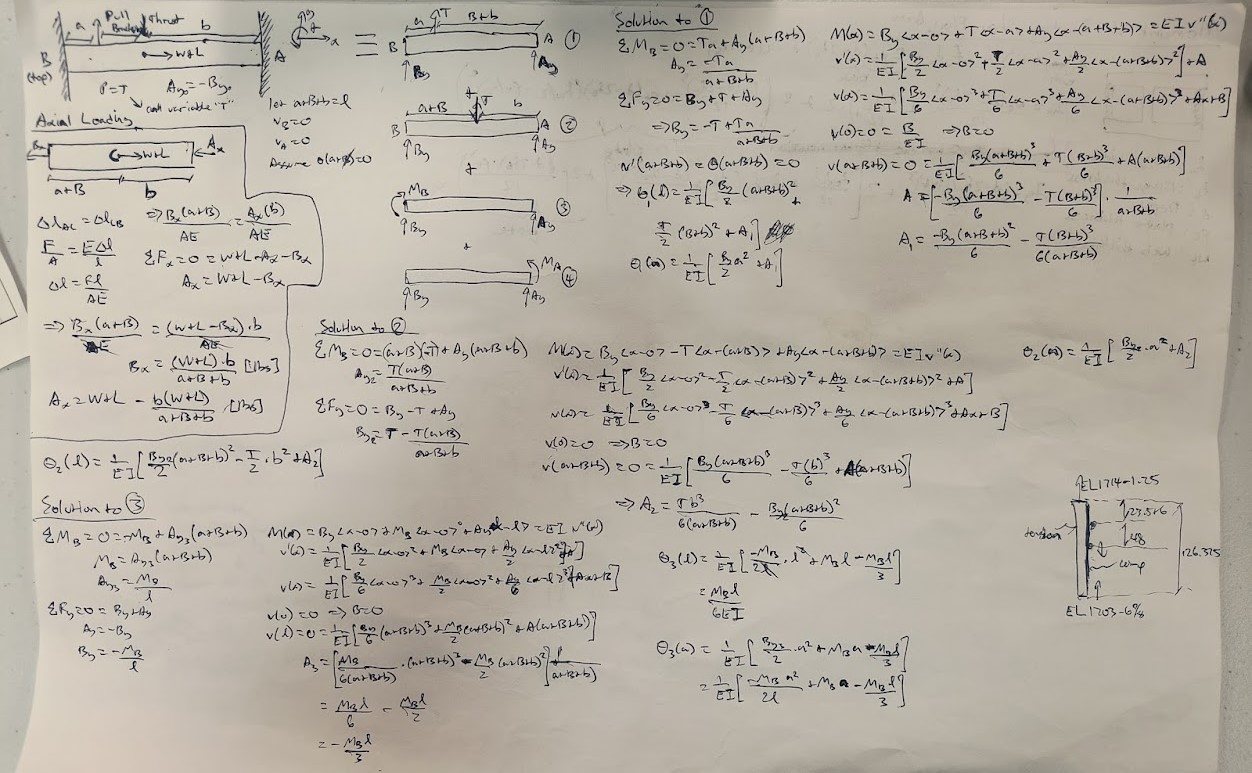 a
Pull
Thrust
b
W+L
B
(top)
A
P=T
Ay₀=-By₀
call variable "T"
let a+B+b=l
v_B=0
v_A=0
Axial Loading
W+L
Ax
a+B
b
Δl_AC = Δl_CB
⇒ Bx(a+B)/AE = Ax(b)/AE
F/A = EΔl/l
ΣFx=0 = W+L-Ax-Bx
Δl = Fl/AE
Ax = W+L-Bx
⇒ Bx(a+B)/AE = (W+L-Bx)·b/AE
Bx = (W+L)·b/(a+B+b) [lbs]
Ax = W+L - b(W+L)/(a+B+b) [lbs]
a T B+b
B A ①
By Ay
+
a+B T b
B A ②
By Ay
+
M_B
③
By Ay
+
M_A
④
By Ay
Solution to ①
ΣM_B=0=Ta+Ay(a+B+b)
Ay = -Ta/(a+B+b)
ΣFy=0=By+T+Ay
⇒By=-T+Ta/(a+B+b)
v'(a+B+b)=Θ(a+B+b)=0
⇒Θ₁(l)=1/EI[By/2 (a+B+b)² +
T/2 (B+b)²+A₁]
Θ₁(a)=1/EI[By/2 a²+A₁]
M(x)=By<x-0>+T<x-a>+Ay<x-(a+B+b)>=EIv''(x)
v'(x)=1/EI[By/2<x-0>²+T/2<x-a>²+Ay/2<x-(a+B+b)>²]+A
v(x)=1/EI[By/6<x-0>³+T/6<x-a>³+Ay/6<x-(a+B+b)>³+Ax+B]
v(0)=0=B/EI ⇒B=0
v(a+B+b)=0=1/EI[By(a+B+b)³/6+T(B+b)³/6+A(a+B+b)]
A=[-By(a+B+b)³/6-T(B+b)³/6]·1/(a+B+b)
A₁=-By(a+B+b)²/6-T(B+b)³/6(a+B+b)
Solution to ②
ΣM_B=0=(a+B)(-T)+Ay(a+B+b)
Ay₂=T(a+B)/(a+B+b)
ΣFy=0=By-T+Ay
By₂=T-T(a+B)/(a+B+b)
Θ₂(l)=1/EI[By₂/2(a+B+b)²-T/2·b²+A₂]
M(x)=By<x-0>-T<x-(a+B)>+Ay<x-(a+B+b)>=EIv''(x)
v'(x)=1/EI[By/2<x-0>²-T/2<x-(a+B)>²+Ay/2<x-(a+B+b)>²+A]
v(x)=1/EI[By/6<x-0>³-T/6<x-(a+B)>³+Ay/6<x-(a+B+b)>³+Ax+B]
v(0)=0 ⇒B=0
v(a+B+b)=0=1/EI[By(a+B+b)³/6-T(b)³/6+A(a+B+b)]
⇒A₂=Tb³/6(a+B+b)-By₂(a+B+b)²/6
Θ₂(a)=1/EI[By₂/2·a²+A₂]
Solution to ③
ΣM_B=0=-M_B+Ay₃(a+B+b)
M_B=Ay₃(a+B+b)
Ay₃=M_B/l
ΣFy=0=By+Ay
Ay=-By
By=-M_B/l
M(x)=By<x-0>+M_B<x-0>⁰+Ay<x-l>=EIv''(x)
v'(x)=1/EI[By/2<x-0>²+M_B<x-0>+Ay/2<x-l>²+A]
v(x)=1/EI[By/6<x-0>³+M_B/2<x-0>²+Ay/6<x-l>³+Ax+B]
v(0)=0 ⇒B=0
v(l)=0=1/EI[By/6(a+B+b)³+M_B/2(a+B+b)²+A(a+B+b)]
A₃=[M_B/6(a+B+b)·(a+B+b)³-M_B/2(a+B+b)²]1/(a+B+b)
=M_Bl/6-M_Bl/2
=-M_Bl/3
Θ₃(l)=1/EI[-M_B/2l·l²+M_Bl-M_Bl/3]
=M_Bl/6EI
Θ₃(a)=1/EI[By₃/2·a²+M_Ba-M_Bl/3]
=1/EI[-M_Ba²/2l+M_Ba-M_Bl/3]
EL1714-1.25
tension
48
comp
126.325
EL1703-6⅞